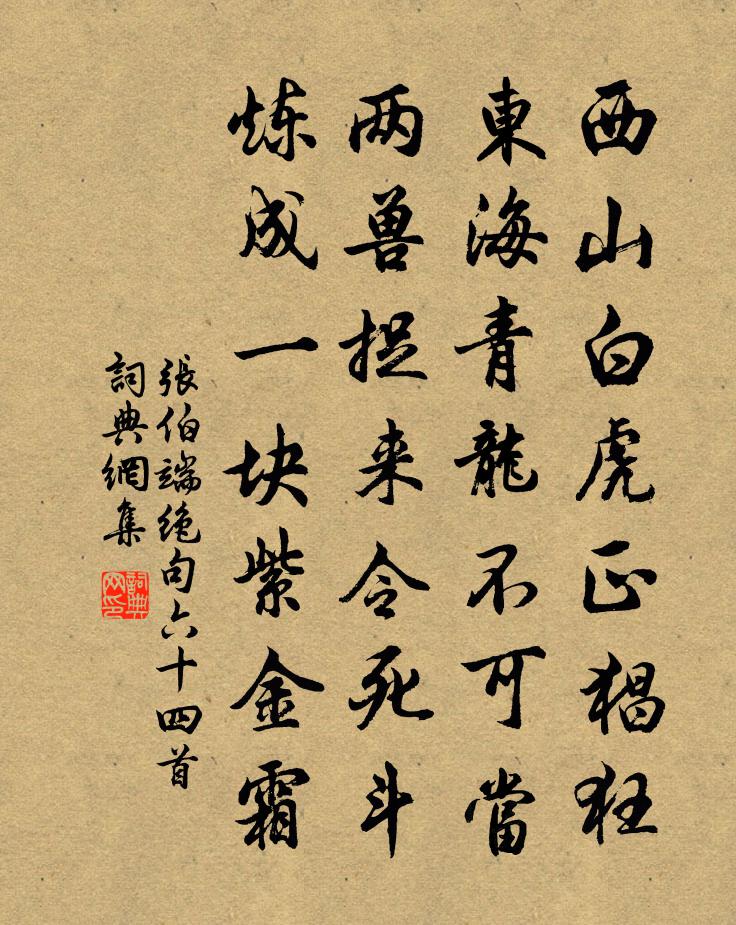 西山白虎正猖狂
東海青龍不可當
两兽捉来令死斗
炼成一块紫金霜
張伯端绝句六十四首
詞典網集
詞典网印